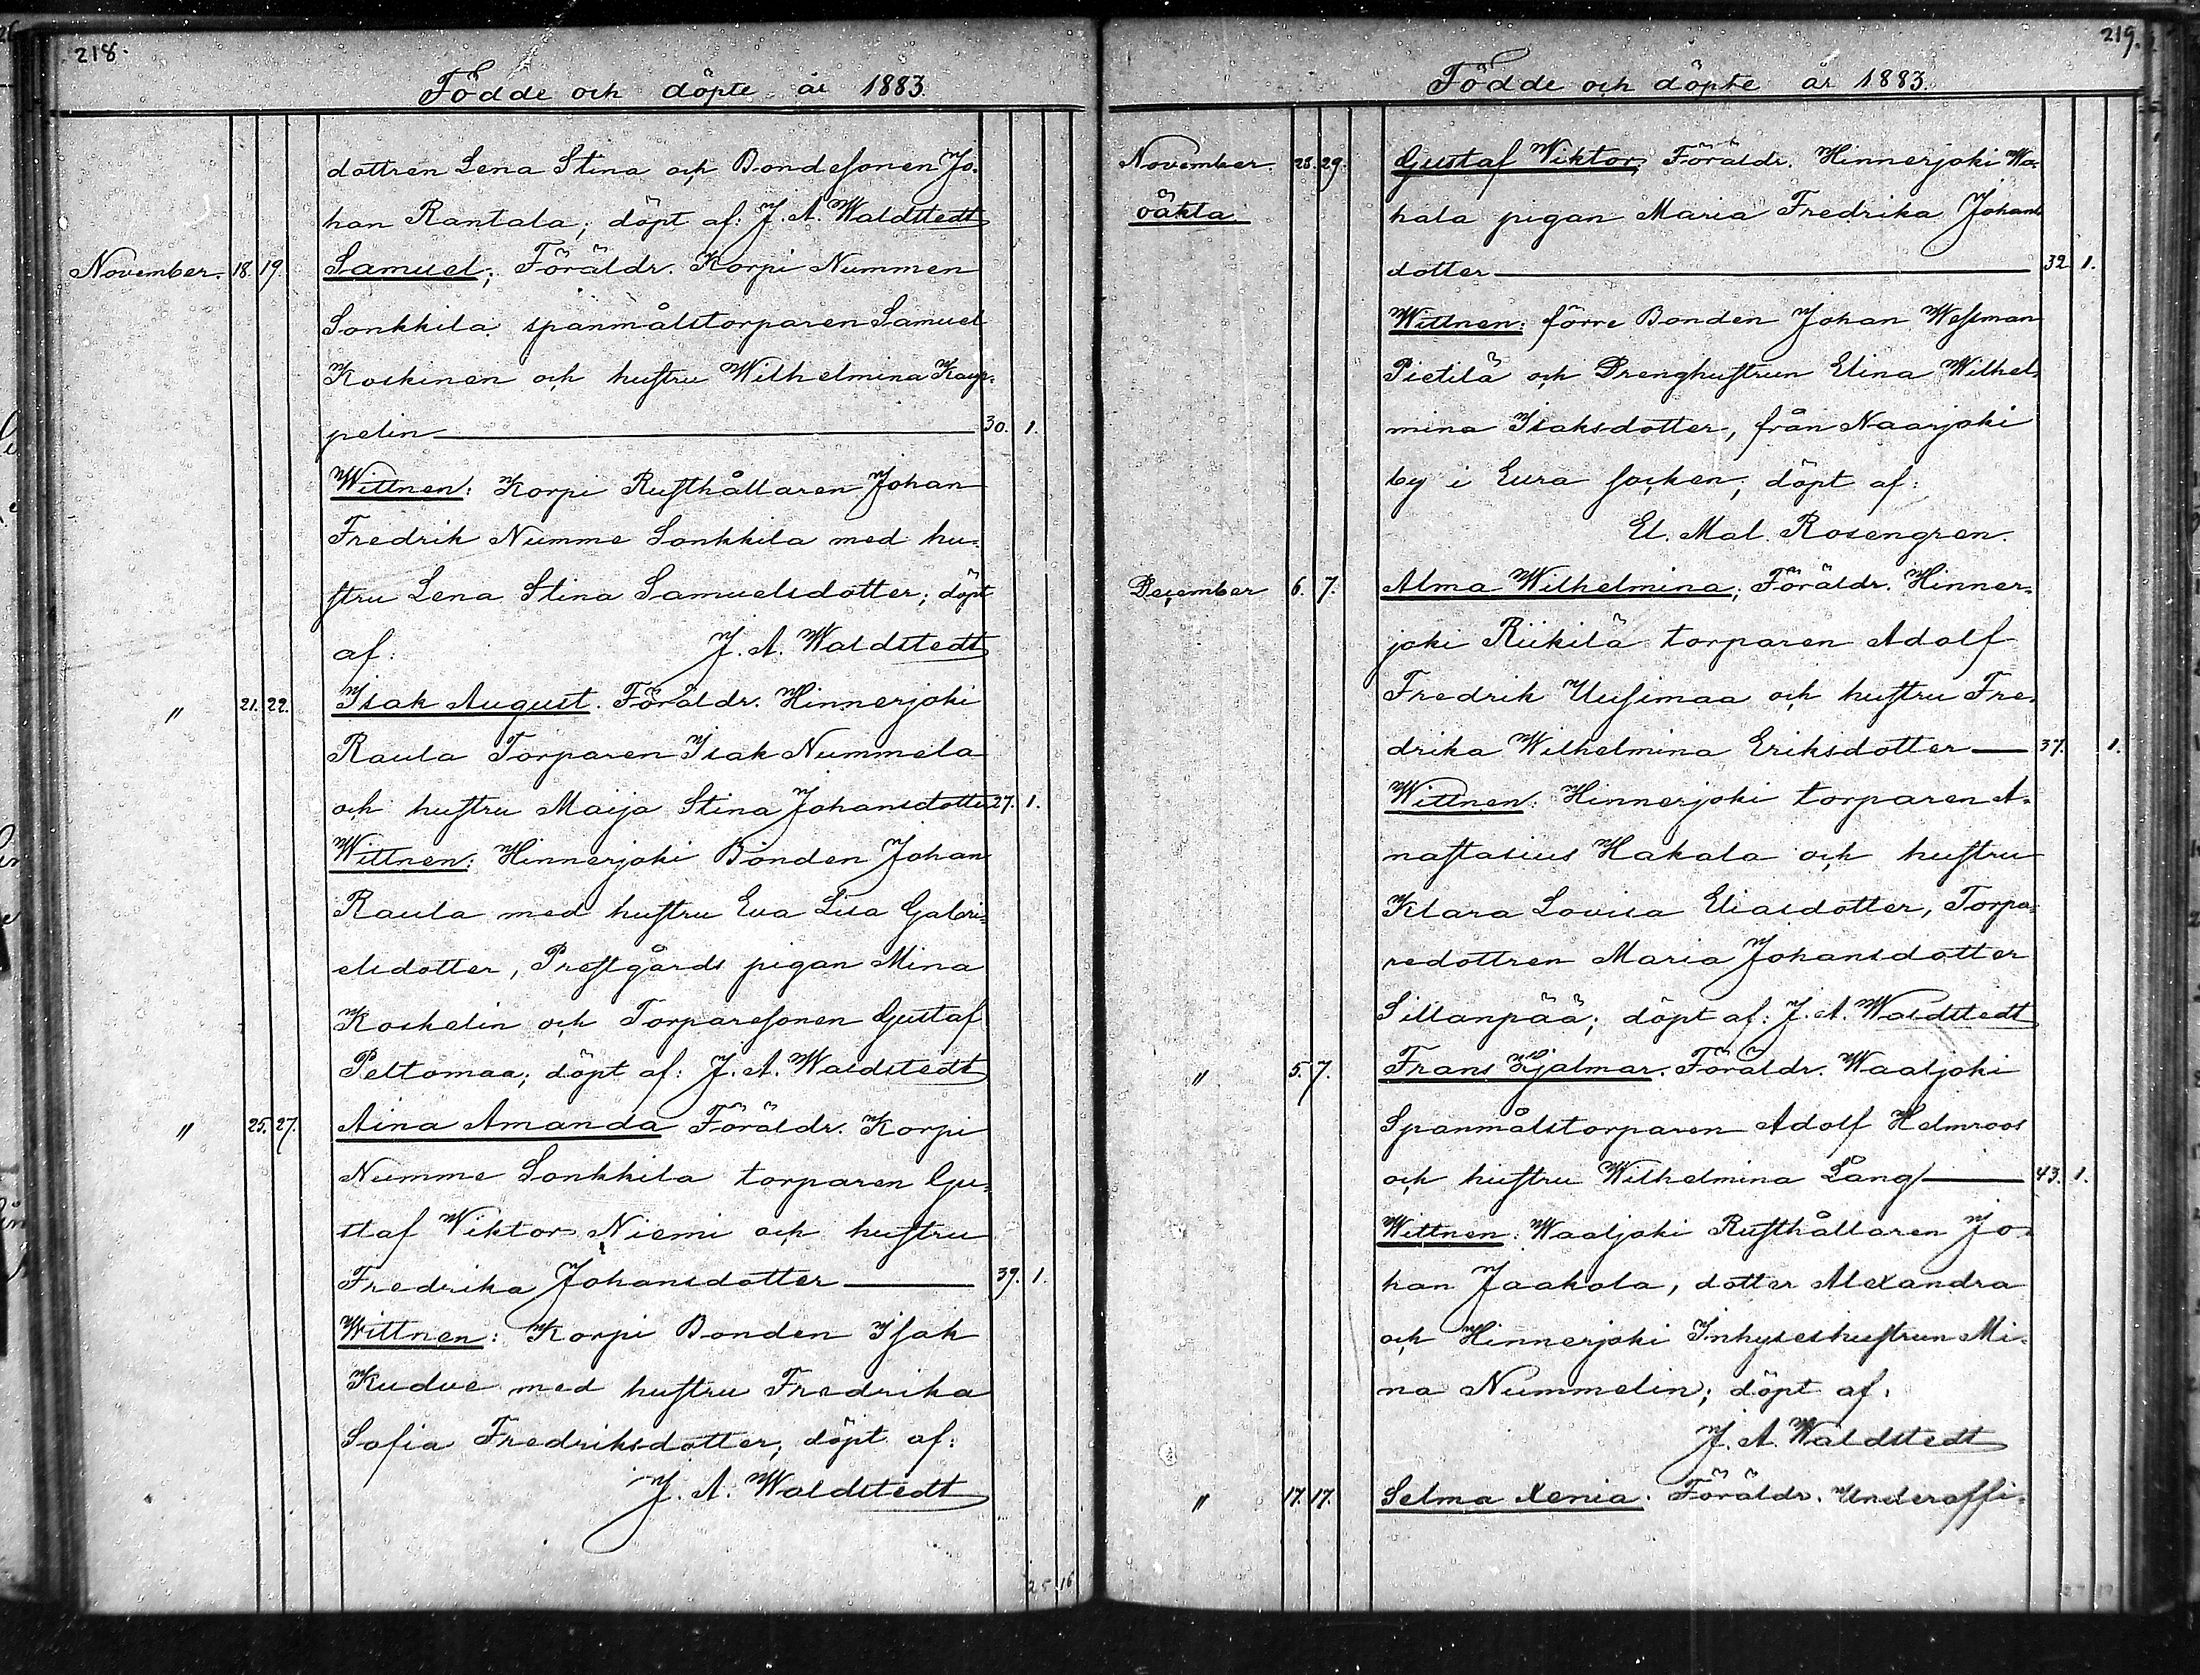 218.
Födde och döpte år 1883.
dottren Lena Stina och Bondesonen Jo-
han Rantala; döpt af: J. A. Waldstedt
November. 18. 19. Samuel; Föräldr. Korpi Nummen
Sonkkila spanmålstorparen Samuel
Koskinen och hustru Wilhelmina Kaup-
pelin 30. 1.
Wittnen: Korpi Rusthållaren Johan
Fredrik Numme Sonkkila med hu-
stru Lena Stina Samuelsdotter; döpt
af: J. A. Waldstedt
" 21. 22. Isak August. Föräldr. Hinnerjoki
Raula Torparen Isak Nummela
och hustru Maija Stina Johansdotter 27. 1.
Wittnen: Hinnerjoki Bonden Johan
Raula med hustru Eva Lisa Gabri-
elsdotter, Prestgårds pigan Mina
Koskelin och Torparesonen Gustaf
Peltomaa; döpt af: J. A. Waldstedt
" 25. 27. Aina Amanda Föräldr. Korpi
Numme Sonkkila torparen Gu-
staf Wiktor Niemi och hustru
Fredrika Johansdotter 39. 1.
Wittnen: Korpi Bonden Isak
Kudue med hustru Fredrika
Sofia Fredriksdotter; döpt af:
J. A. Waldstedt
25 16
219.
Födde och döpte år 1883.
November. 28. 29. Gustaf Wiktor; Föräldr. Hinnerjoki Wa-
oäkta hala pigan Maria Fredrika Johans
dotter 32. 1.
Wittnen: förre Bonden Johan Wessman
Pietilä och Drenghustrun Elina Wilhel-
mina Isaksdotter, från Naarjoki
by i Eura socken; döpt af:
El. Mal. Rosengren.
December 6. 7. Alma Wilhelmina; Föräldr. Hinner-
joki Riikilä torparen Adolf
Fredrik Uusimaa och hustru Fre-
drika Wilhelmina Eriksdotter 37. 1.
Wittnen: Hinnerjoki torparen A-
nastasius Hakala och hustru
Klara Lovisa Eliasdotter, Torpa-
redottren Maria Johansdotter
Sillanpää; döpt af: J. A. Waldstedt
" 5. 7. Frans Hjalmar. Föräldr. Waaljoki
Spanmålstorparen Adolf Helmroos
och hustru Wilhelmina Lång 43. 1.
Wittnen: Waaljoki Rusthållaren Jo-
han Jaakola, dotter Alexandra
och Hinnerjoki Inhyseshustrun Mi-
na Nummelin; döpt af:
J. A. Waldstedt
" 17. 17. Selma Xenia. Föräldr. Underoffi-